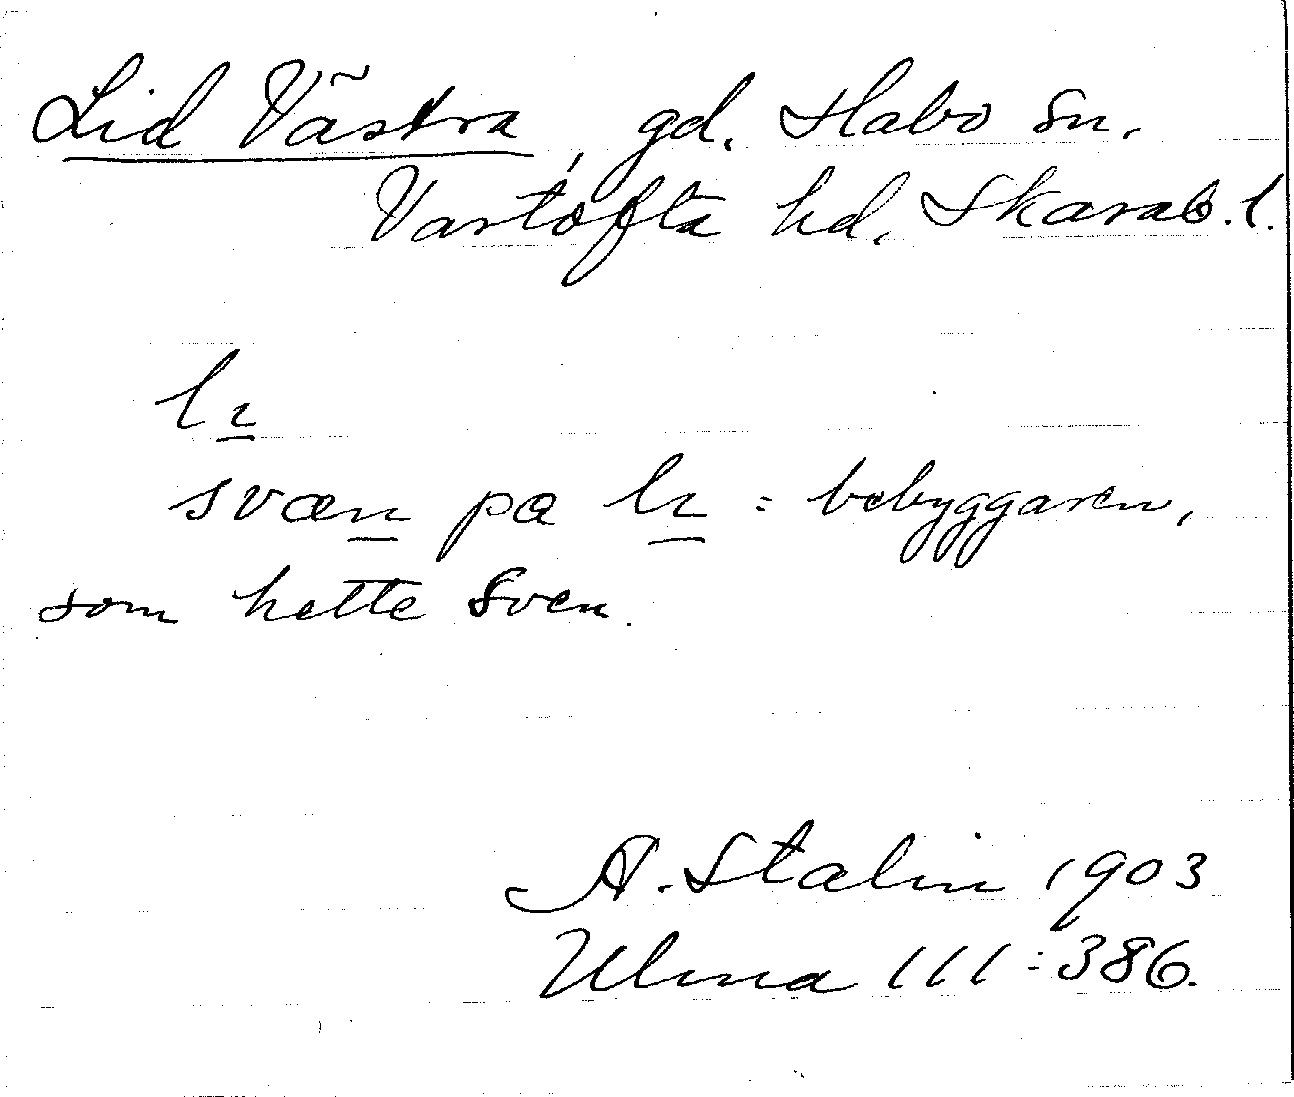 Lid Västra, gd. Habo sn.
Vartofta hd. Skarab. l.
lɩ
svæn pa lɩ = bebyggaren,
som hette Sven.
A. Stalin 1903
Ulma 111:386.